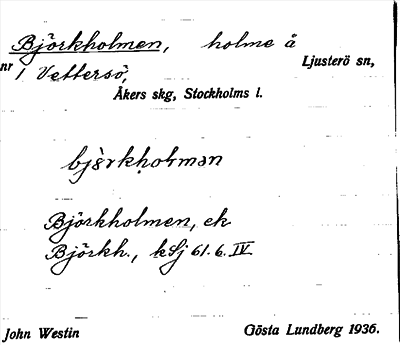 Björkholmen, holme å
nr 1 Vettersö, Ljusterö sn,
Åkers skg, Stockholms l.
bjö̀rkho̩lmən
Björkholmen, ek
Björkh., kSj 61.6.IV
John Westin Gösta Lundberg 1936.